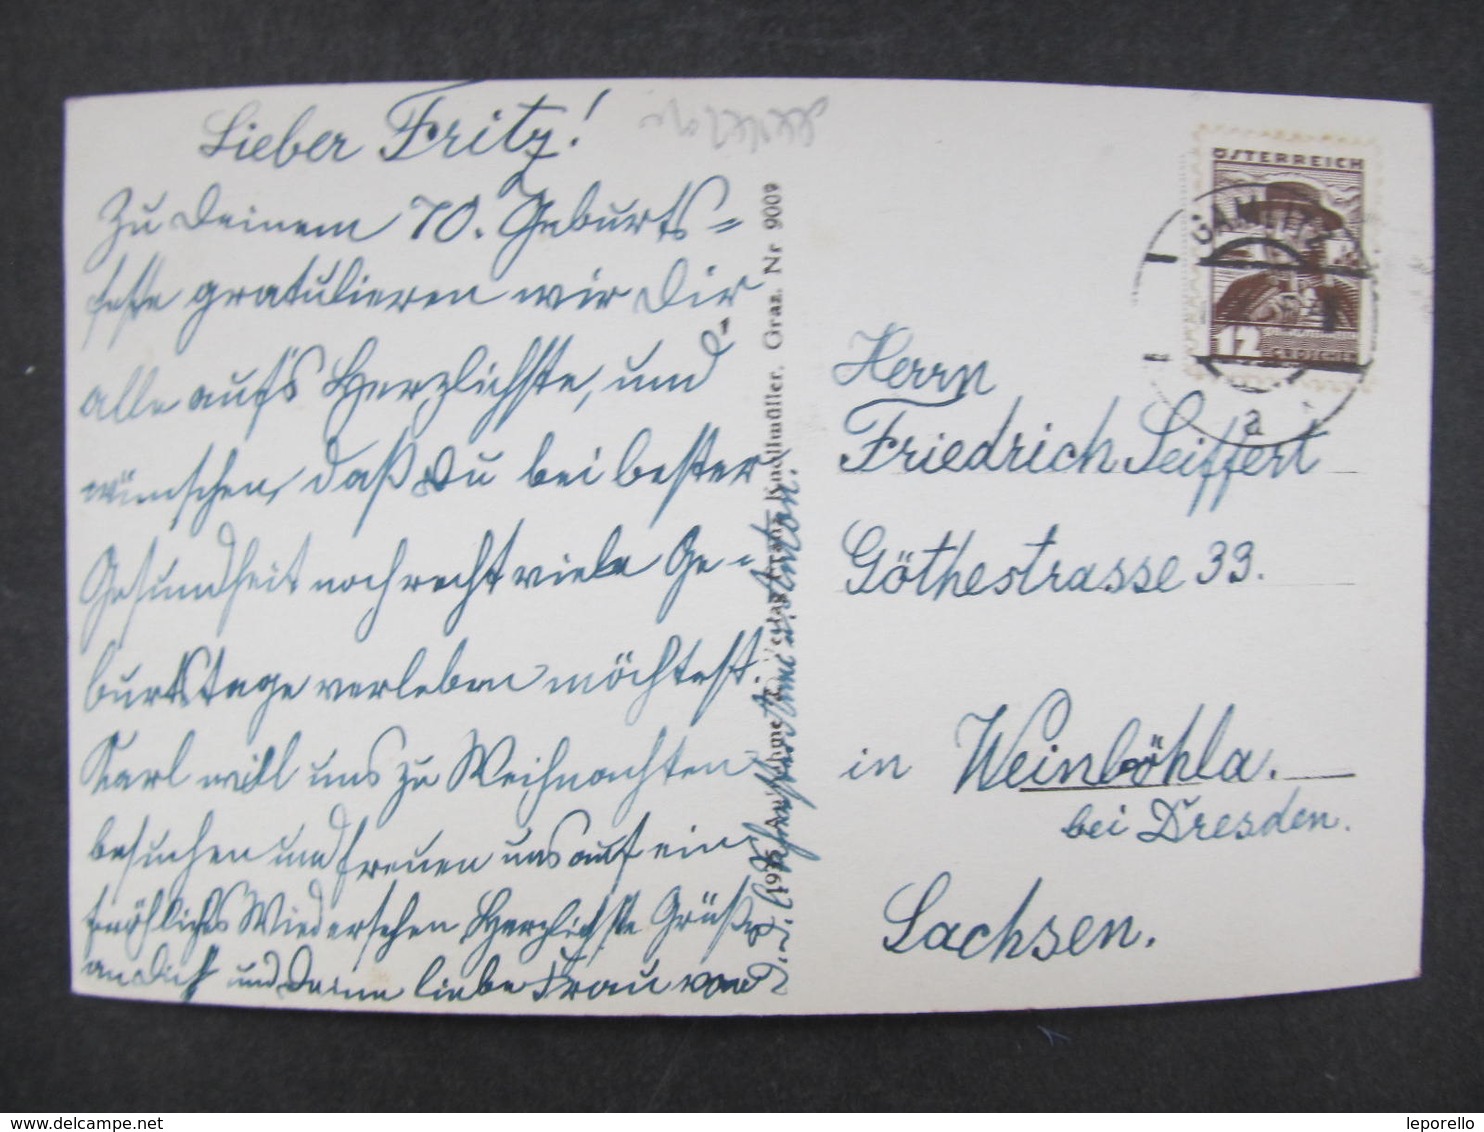 Lieber Fritz!
Zu Deinem 70. Geburts=
feste gratulieren wir Dir
alle aufs Herzlichste, und
wünschen, daß Du bei bester
Gesundheit noch recht viele Ge-
burtstage verleben möchtest.
Karl will uns zu Weihnachten
besuchen und freuen uns auf ein
fröhliches Wiedersehen. Herzlichste Grüße
an Dich und Deine liebe Frau von
Anton.
1935 Aufnahme u. Verlag Franz Knollmüller. Graz. Nr 9009
ÖSTERREICH
GAMLITZ
12
GROSCHEN
a
Herrn
Friedrich Seiffert
Göthestrasse 33.
in Weinböhla.
bei Dresden.
Sachsen.
leporello